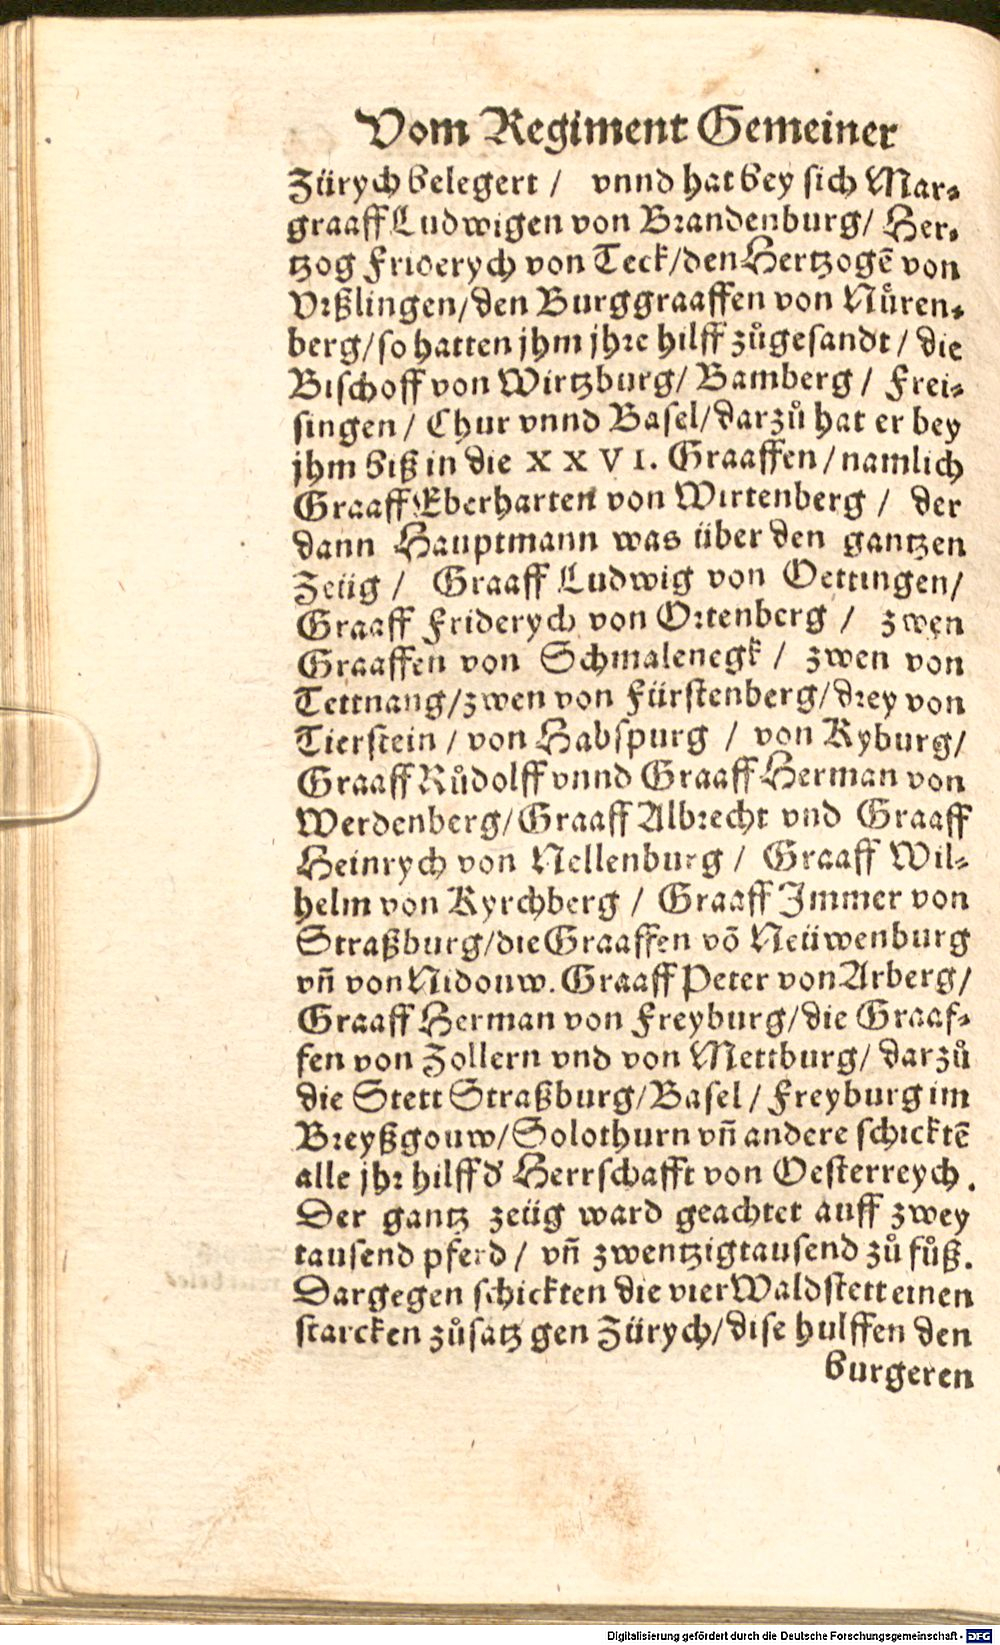 Vom Regiment Gemeiner
Zürych belegert / vnnd hat bey sich Mar-
graaff Ludwigen von Brandenburg/ Her-
tzog Friderych von Teck/den Hertzogē von
Vrßlingen/den Burggraaffen von Nůren-
berg/so hatten jhm jhre hilff zůgesandt / die
Bischoff von Wirtzburg/ Bamberg / Frei-
singen / Chur vnnd Basel/darzů hat er bey
jhm biß in die XXVI. Graaffen/namlich
Graaff Eberharten von Wirtenberg / der
dann Hauptmann was über den gantzen
Zeüg / Graaff Ludwig von Oettingen/
Graaff Friderych von Ortenberg / zwen
Graaffen von Schmalenegk / zwen von
Tettnang/zwen von Fürstenberg/drey von
Tierstein / von Habspurg / von Kyburg/
Graaff Růdolff vnnd Graaff Herman von
Werdenberg/Graaff Albrecht vnd Graaff
Heinrych von Nellenburg / Graaff Wil-
helm von Kyrchberg / Graaff Immer von
Straßburg/die Graaffen vō Neüwenburg
vn̄ von Nidouw. Graaff Peter von Arberg/
Graaff Herman von Freyburg/die Graaf-
fen von Zollern vnd von Mettburg/ darzů
die Stett Straßburg/Basel / Freyburg im
Breyßgouw/Solothurn vn̄ andere schicktē
alle jhr hilff d' Herrschafft von Oesterreych.
Der gantz zeüg ward geachtet auff zwey
tausend pferd / vn̄ zwentzigtausend zů fůß.
Dargegen schickten die vier Waldstett einen
starcken zůsatz gen Zürych/dise hulffen den
burgeren
Digitalisierung gefördert durch die Deutsche Forschungsgemeinschaft - DFG